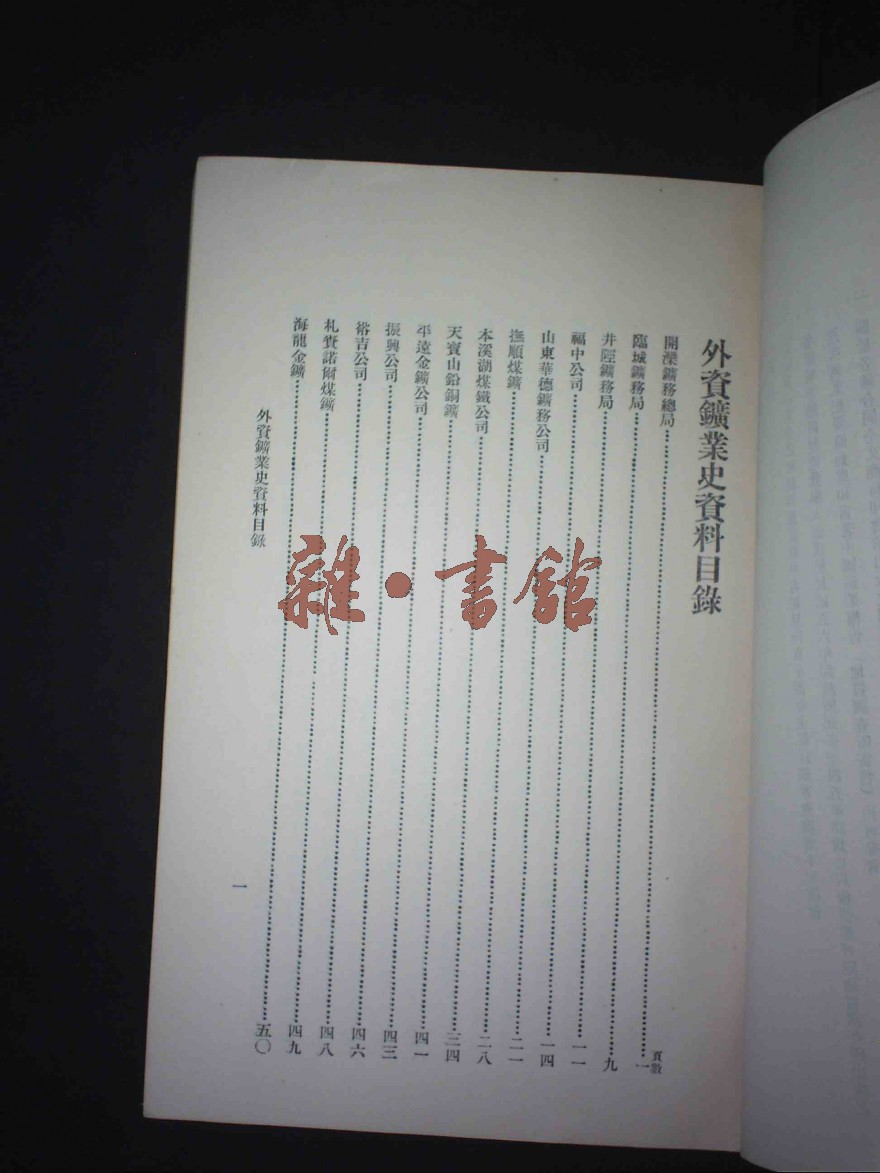 外資鑛業史資料目錄
頁數
開灤鑛務總局……一
臨城鑛務局……九
井陘鑛務局……一一
福中公司……一四
山東華德鑛務公司……二一
撫順煤鑛……二八
本溪湖煤鐵公司……三四
天寶山鉛銅鑛……四一
平遠金鑛公司……四三
振興公司……四六
裕吉公司……四八
札賚諾爾煤鑛……四九
海龍金鑛……五〇
外資鑛業史資料目錄
一
雜·書館